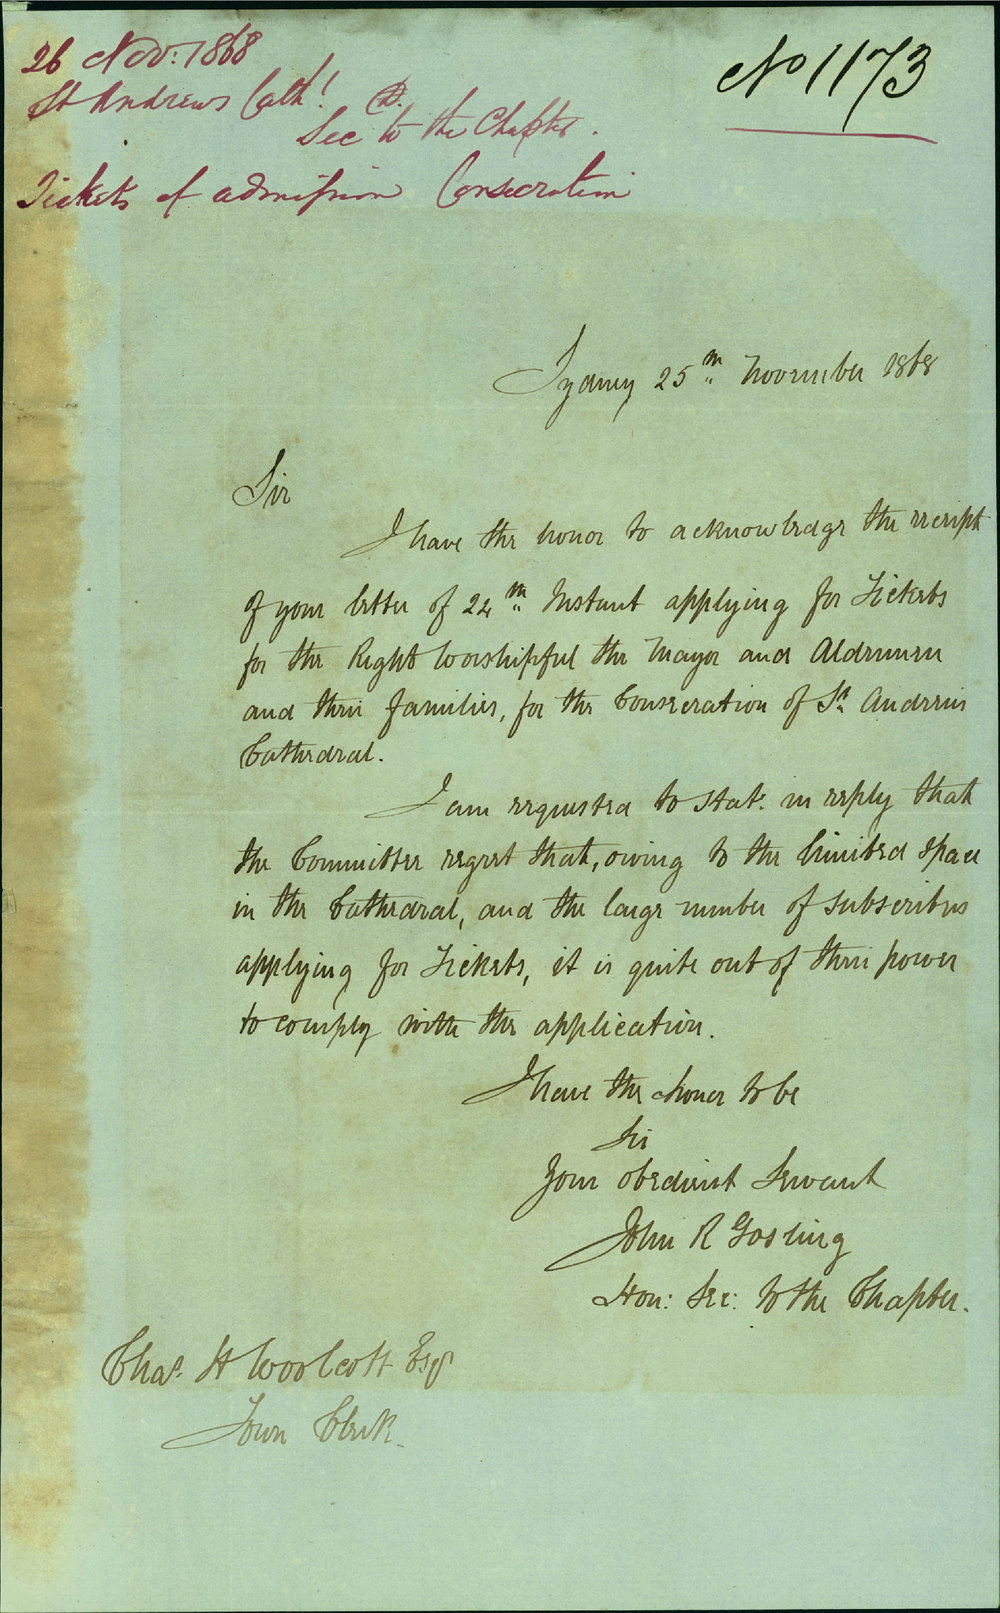 26 Nov: 1868
No 1173
St Andrews Cath!
Sec to the Chapter.
Tickets of admission Consecration
Sydney 25th November 1868
Sir
I have the honor to acknowledge the receipt
of your letter of 24th Instant applying for Tickets
for the Right Worshipful the Mayor and Aldermen
and their families, for the Consecration of St. Andrews
Cathedral.
I am requested to state in reply that
the Committee regret that, owing to the limited space
in the Cathedral, and the large number of subscribers
applying for Tickets, it is quite out of their power
to comply with the application.
I have the honor to be
Sir
Your obedient Servant
John R Gosling
Hon: Sec: to the Chapter.
Chas. H Woolcott Esqr
Town Clerk.